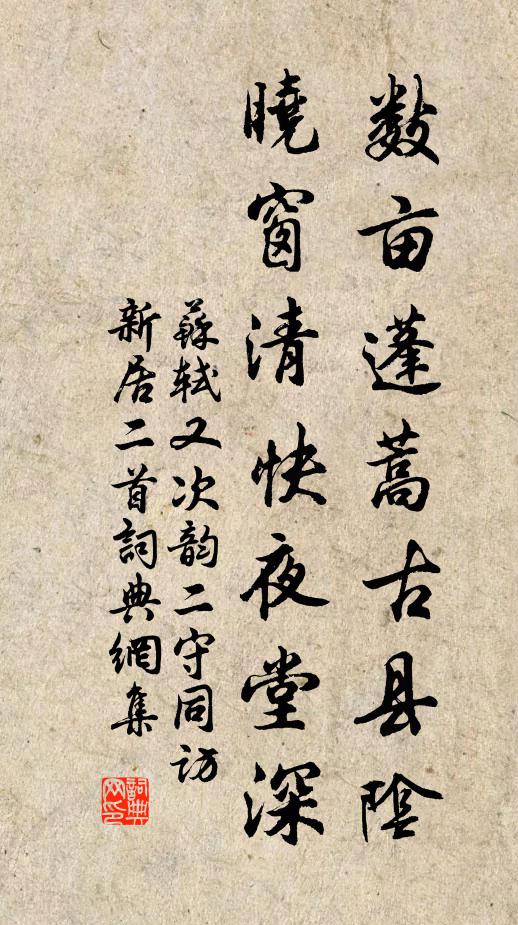 数亩蓬蒿古县陰
曉窗清快夜堂深
蘇轼又次韵二守同訪
新居二首詞典網集
詞典网印